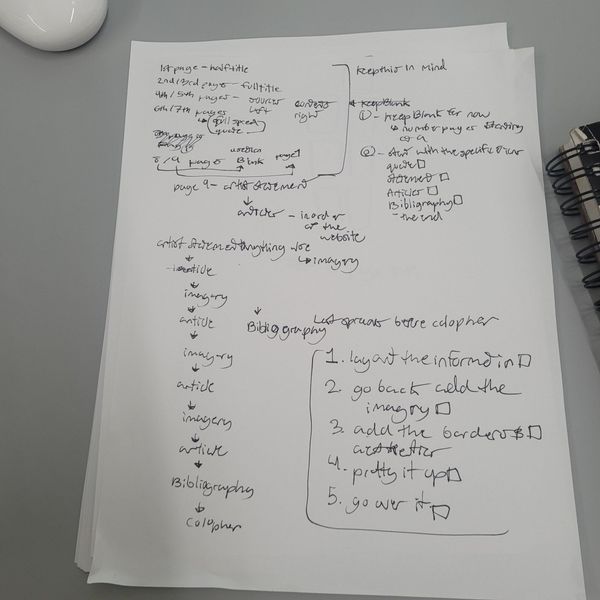 1st page - halftitle
2nd/3rd pages fulltitle
4th/5th pages - sources contents
6th/7th pages left right
↳ full spread quote
8/9 pages Blank page 1
page 9 - artist statement
↓
articles - in order of the website
↳ imagery
Keep this in mind
① - Keep Blank for now
↳ number pages starting at 9
② - start with the specific order
quote □
statement □
Articles □
Bibliography □
- the end
artist statement
↓
article
↓
imagery
↓
article
↓
imagery
↓
article
↓
imagery
↓
article
↓
Bibliography
↓
Colopher
↓
Bibliography Last spread before colopher
1. lay out the informd in □
2. go back add the
imagery □
3. add the borders & □
aesthetics
4. pretty it up □
5. go over it □